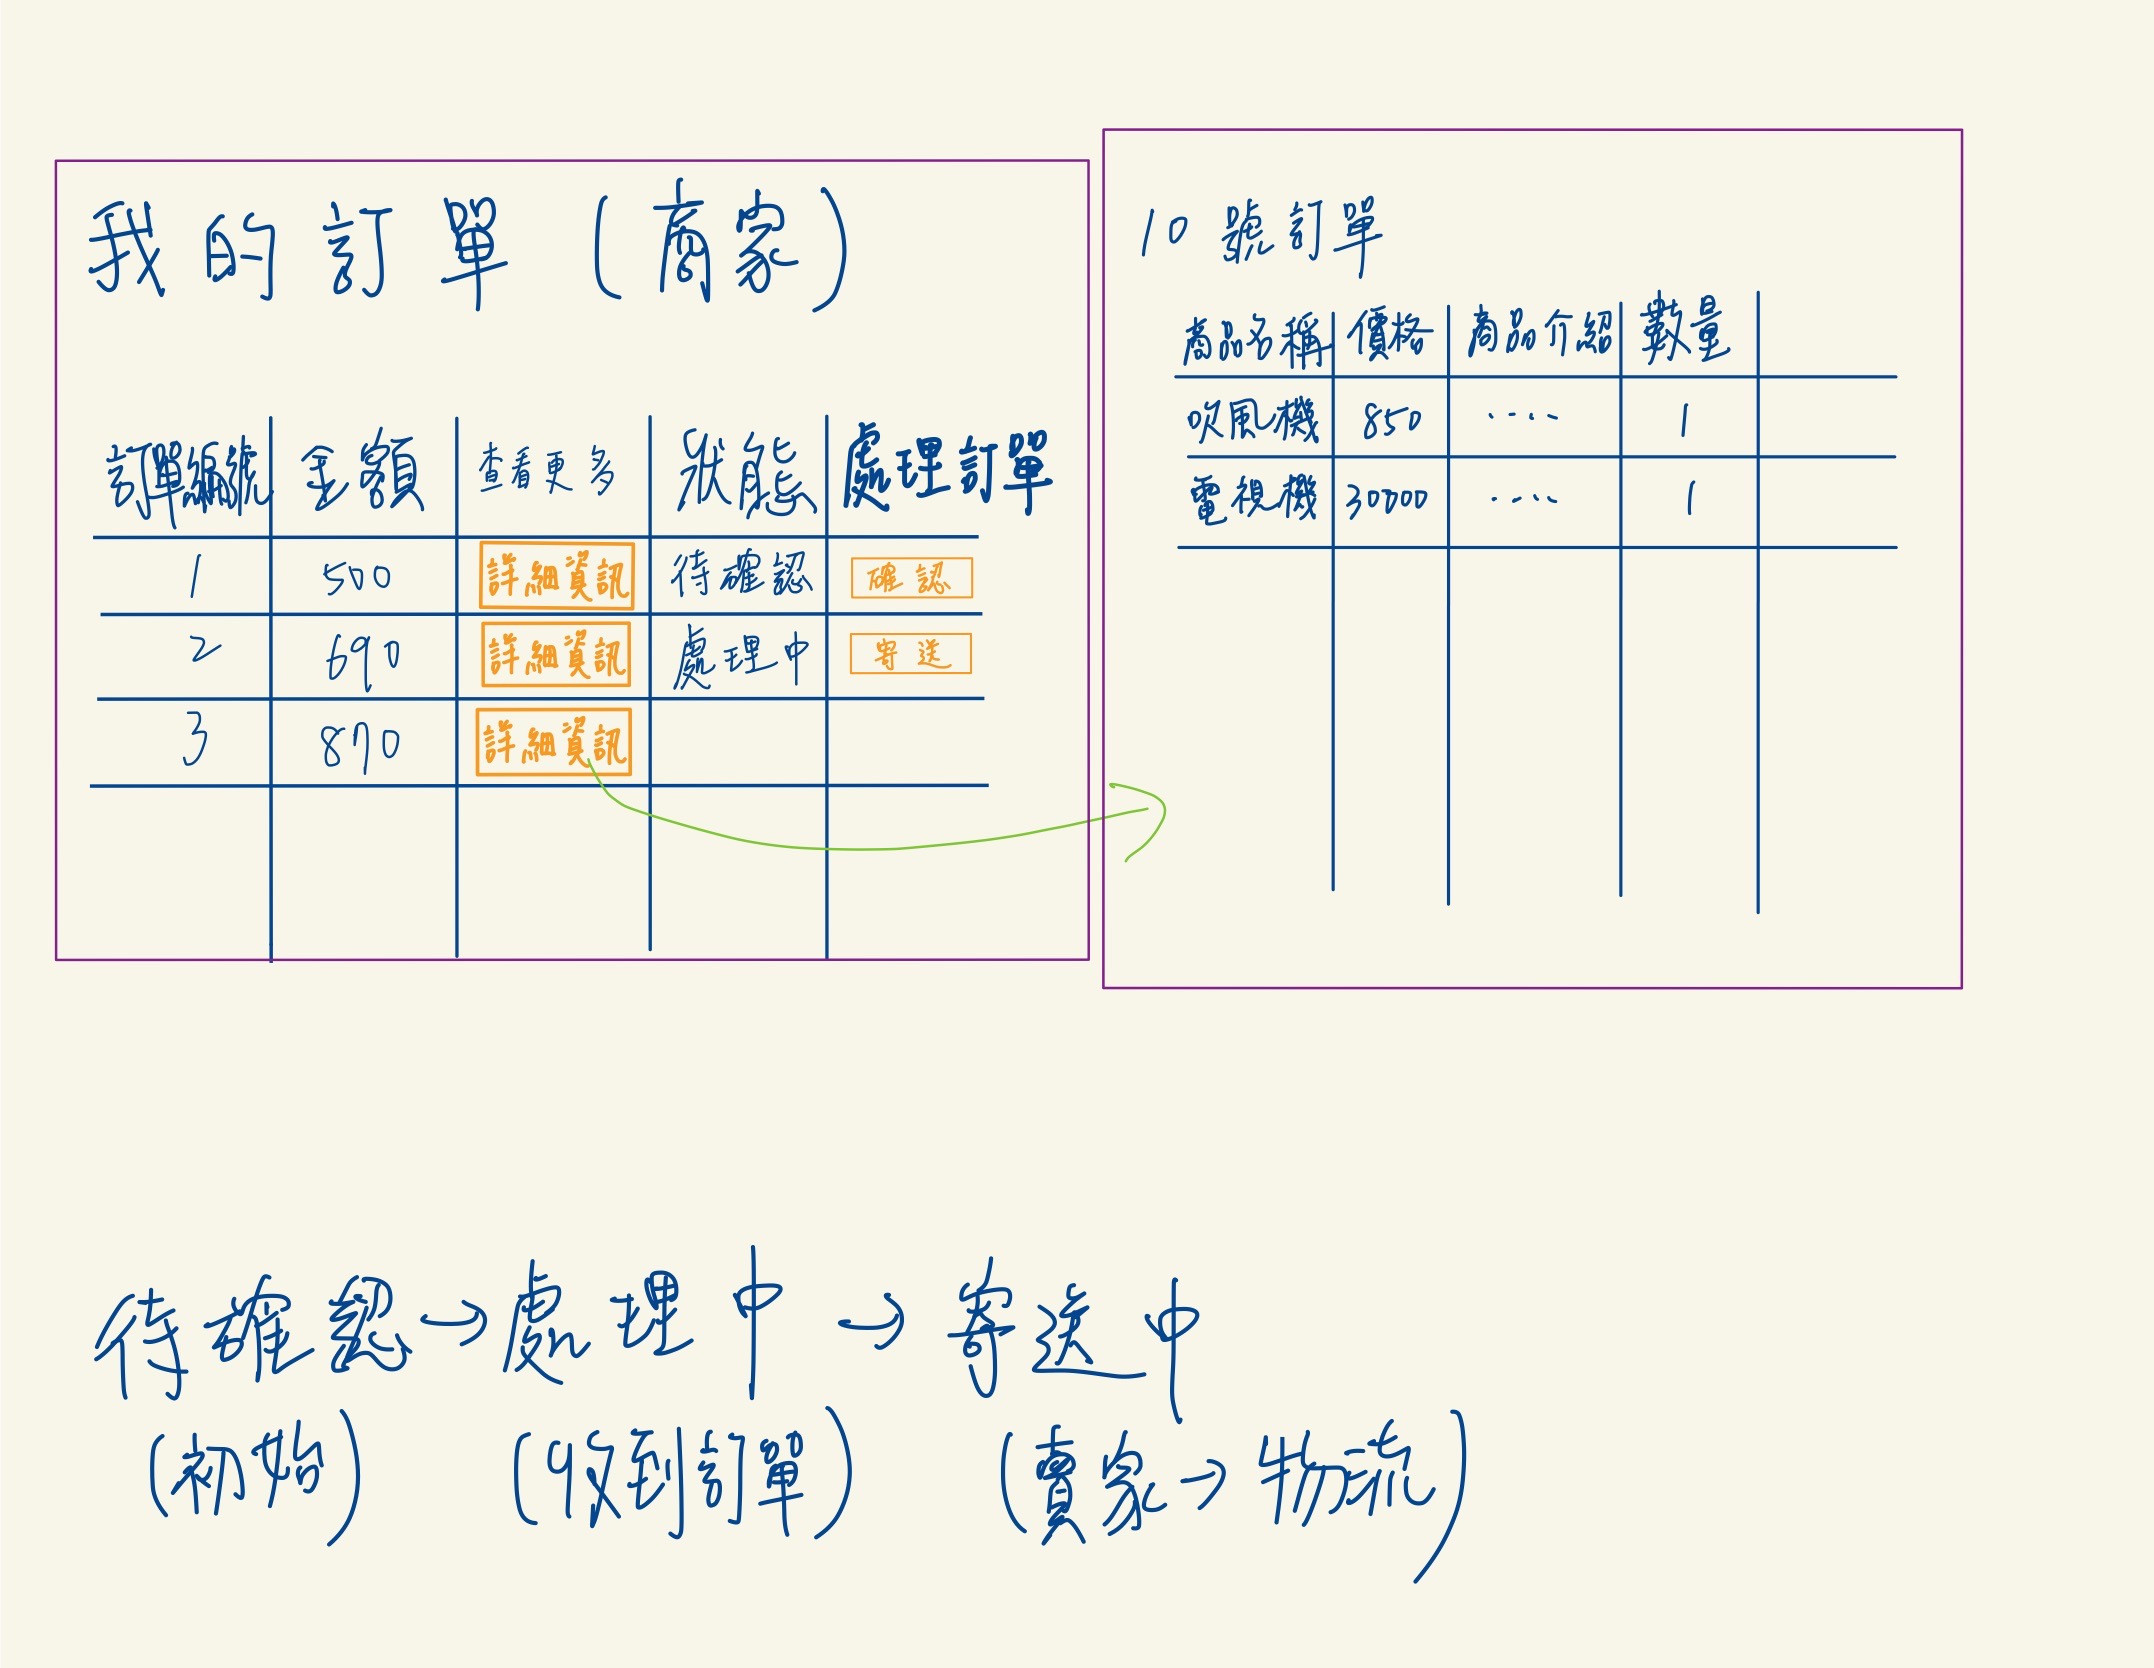 我的訂單(商家)
訂單編號 金額 查看更多 狀態 處理訂單
1 500 詳細資訊 待確認 確認
2 690 詳細資訊 處理中 寄送
3 870 詳細資訊
10號訂單
商品名稱 價格 商品介紹 數量
吹風機 850 ‥‥ 1
電視機 30000 ‥‥ 1
待確認→處理中→寄送中
(初始) (收到訂單) (賣家→物流)